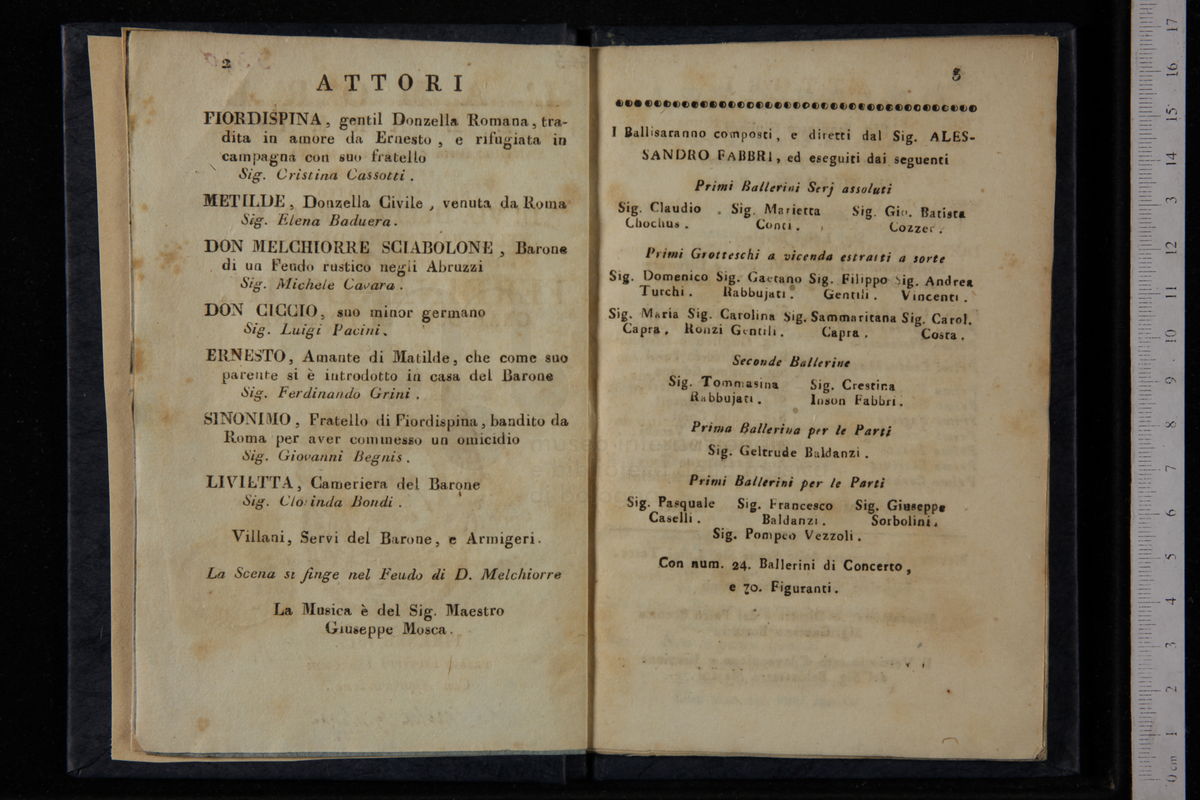 2
ATTORI
FIORDISPINA, gentil Donzella Romana, tra-
dita in amore da Ernesto, e rifugiata in
campagna con suo fratello
Sig. Cristina Cassotti.
METILDE, Donzella Civile, venuta da Roma
Sig. Elena Baduera.
DON MELCHIORRE SCIABOLONE, Barone
di un Feudo rustico negli Abruzzi
Sig. Michele Cavara.
DON CICCIO, suo minor germano
Sig. Luigi Pacini.
ERNESTO, Amante di Matilde, che come suo
parente si è introdotto in casa del Barone
Sig. Ferdinando Grini.
SINONIMO, Fratello di Fiordispina, bandito da
Roma per aver commesso un omicidio
Sig. Giovanni Begnis.
LIVIETTA, Cameriera del Barone
Sig. Clorinda Bondi.
Villani, Servi del Barone, e Armigeri.
La Scena si finge nel Feudo di D. Melchiorre
La Musica è del Sig. Maestro
Giuseppe Mosca.
3
I Ballisaranno composti, e diretti dal Sig. ALES-
SANDRO FABBRI, ed eseguiti dai seguenti
Primi Ballerini Serj assoluti
Sig. Claudio Sig. Marietta Sig. Gio. Batista
Chochus. Conti. Cozzer.
Primi Grotteschi a vicenda estratti a sorte
Sig. Domenico Sig. Gaetano Sig. Filippo Sig. Andrea
Turchi. Rabbujati. Gentili. Vincenti.
Sig. Maria Sig. Carolina Sig. Sammaritana Sig. Carol.
Capra. Ronzi Gentili. Capra. Costa.
Seconde Ballerine
Sig. Tommasina Sig. Crestina
Rabbujati. Inson Fabbri.
Prima Ballerina per le Parti
Sig. Geltrude Baldanzi.
Primi Ballerini per le Parti
Sig. Pasquale Sig. Francesco Sig. Giuseppe
Caselli. Baldanzi. Sorbolini.
Sig. Pompeo Vezzoli.
Con num. 24. Ballerini di Concerto,
e 70. Figuranti.
0 cm 1 2 3 4 5 6 7 8 9 10 11 12 13 14 15 16 17